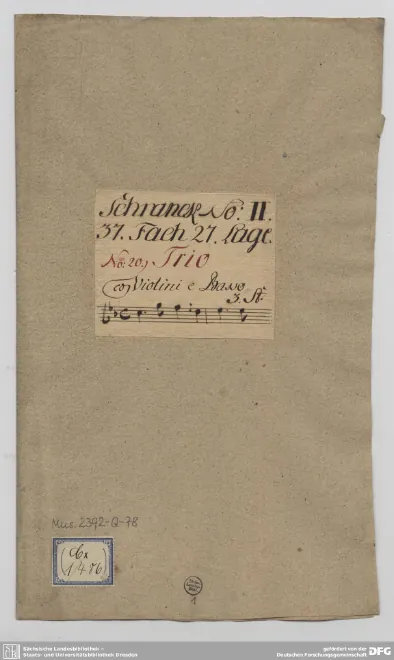 Schranck No: II.
37. Fach 27. Lage.
No: 20, Trio
co Violini e Basso
3. St:
Mus. 2392-Q-78
(Cx
1476)
1
Sächsische Landesbibliothek –
Staats- und Universitätsbibliothek Dresden
gefördert von der
Deutschen Forschungsgemeinschaft
DFG